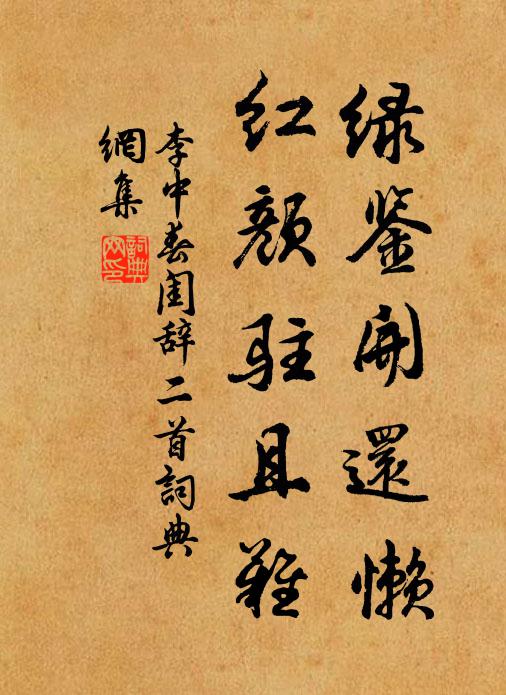 绿鉴開還懒
红颜駐且難
李中春闺辞二首詞典
網集
詞典
网印